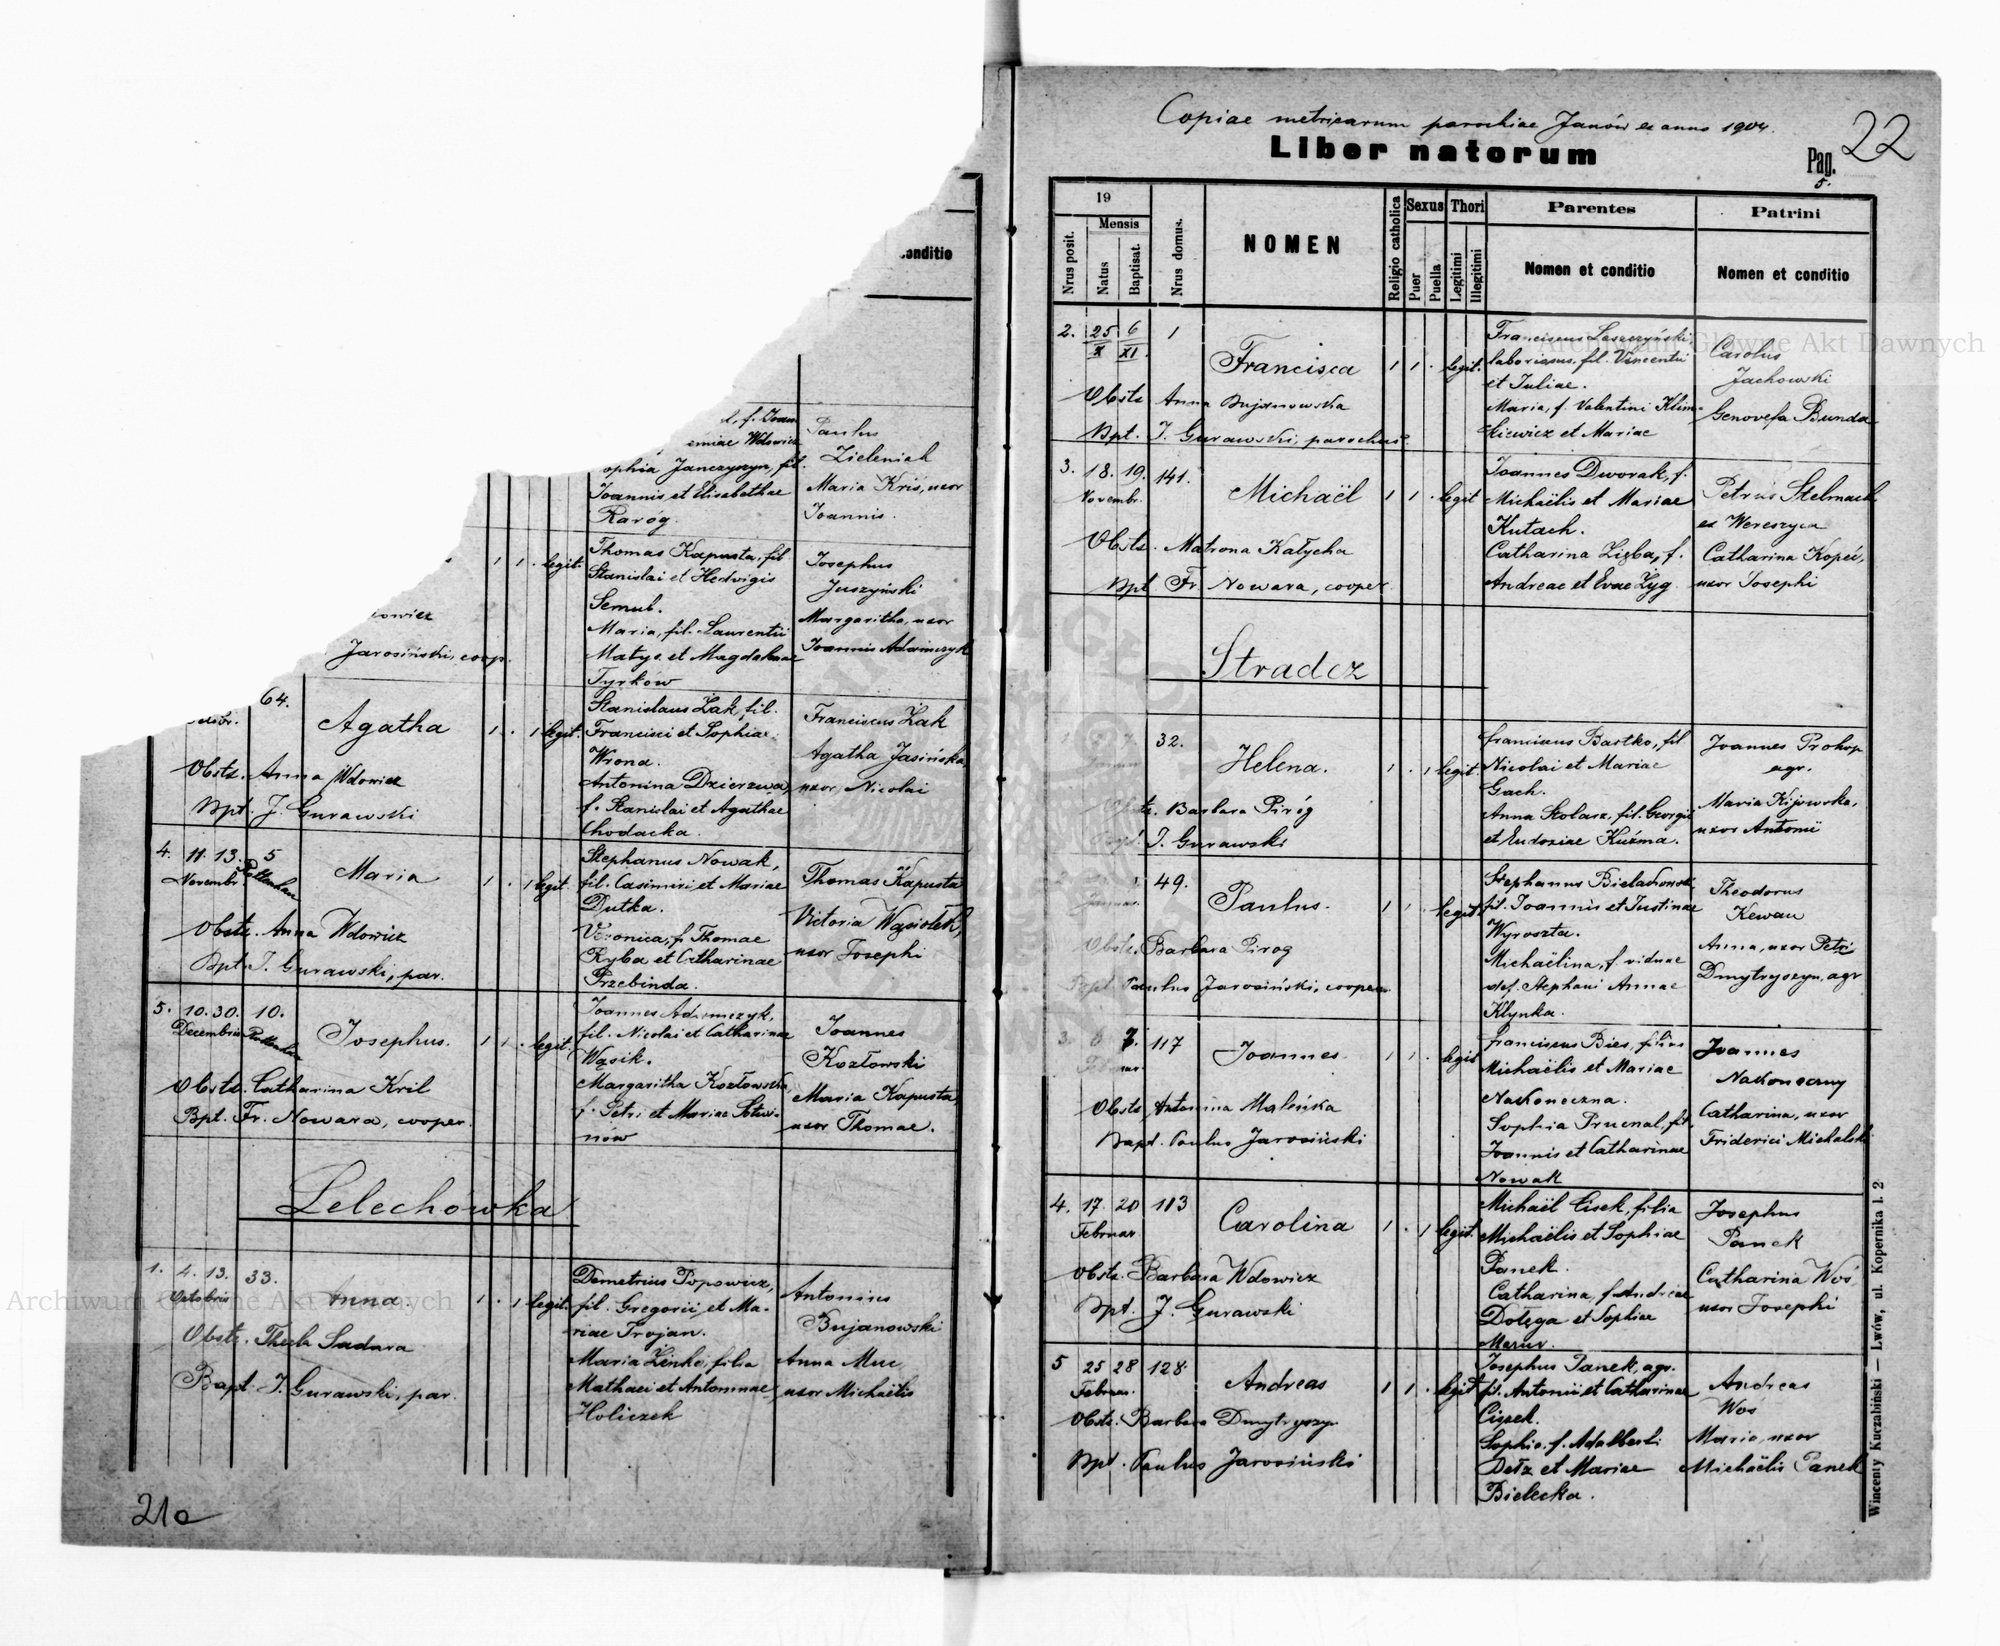 .onditio
l, f. Joan
emiae Wdowicz
ophia Janczyszyn, fil.
Joannis et Elisabethae
Raróg.
Paulus
Zieleniak
Maria Kris, uxor
Joannis.
1 1 . legit.
Thomas Kapusta, fil.
Stanislai et Hedvigis
Semub.
Maria, fil. Laurentii
Matys et Magdalenae
Tyrków
Josephus
Juszyński
Margaritha, uxor
Joannis Adamczyk
owicz
Jarosiński, coop.
64.
Agatha
1 . 1 legit.
Obstz. Anna Wdowicz
Bpt. J. Gurawski
Stanislaus Żak, fil.
Francisci et Sophiae
Wrona.
Antonina Dzierzwa,
f. Stanislai et Agathae
Chodacka.
Franciscus Żak
Agatha Jasińska
uxor Nicolai
4. 11. 13. 5
Novembr.
Maria
1 . 1 legit.
Obstz. Anna Wdowicz
Bpt. J. Gurawski, par.
Stephanus Nowak,
fil. Casimiri et Mariae
Dutka.
Veronica, f. Thomae
Ryba et Catharinae
Przebinda.
Thomas Kapusta
Victoria Wąsiołek,
uxor Josephi
5. 10. 30. 10.
Decembris
Josephus.
1 1 . legit.
Obstz. Catharina Kril
Bpt. Fr. Nowara, cooper.
Joannes Adamczyk,
fil. Nicolai et Catharinae
Wąsik.
Margaritha Kozłowska
f. Petri et Mariae Sotwi-
nów
Joannes
Kozłowski
Maria Kapusta,
uxor Thomae.
Lelechówka
1. 4. 13. 33.
Octobris
Anna
1 . 1 legit.
Obstz. Thecla Sadara
Bapt. J. Gurawski, par.
Demetrius Popowicz,
fil. Gregorii et Ma-
riae Trojan.
Maria Zinko, filia
Mathaei et Antoninae
Holiczek
Antonius
Bujanowski
Anna Muc,
uxor Michaëlis
21a
Copiae metricarum parochiae Janów ex anno 1904.
Liber natorum
Pag. 22
5.
19
Nrus posit.
Mensis
Natus
Baptisat.
Nrus domus.
NOMEN
Religio catholica
Sexus
Puer
Puella
Thori
Legitimi
Illegitimi
Parentes
Nomen et conditio
Patrini
Nomen et conditio
2. 25/X 6/XI 1
Francisca
1 1 . legit.
Obstz Anna Bujanowska
Bpt. J. Gurawski, parochus.
Franciscus Leszczyński,
laboriosus, fil. Vincentii
et Juliae.
Maria, f. Valentini Klim-
kiewicz et Mariae
Carolus
Jachowski
Genovefa Bunda
3. 18. 19. 141.
Novembr.
Michaël
1 1 . legit
Obstz. Matrona Kałycha
Bpt Fr. Nowara, cooper.
Joannes Dworak, f.
Michaëlis et Mariae
Kutach.
Catharina Zięba, f.
Andreae et Evae Zyg.
Petrus Stelmach
ex Wereszyca
Catharina Kopeć,
uxor Josephi
Stradcz
32.
Helena.
1 . 1 legit.
Barbara Piróg
J. Gurawski
Franciscus Bartko, fil.
Nicolai et Mariae
Gach.
Anna Stolarz, fil. Georgii
et Eudoxiae Kuźma.
Joannes Prokop
agr.
Maria Kijowska,
uxor Antonii
49.
Paulus.
1 1 . legit
Obstz. Barbara Pirog
Bpt. Paulus Jarosiński, cooper.
Stephanus Bielachowski
fil. Joannis et Justinae
Wyroszta.
Michaëlina, f. viduae
def. Stephani Annae
Klynka.
Theodorus
Kewan
Anna, uxor Petri
Dmytryszyn, agr
3. 6 7. 117
Februar.
Joannes.
1 1 . legit
Obstz. Antonina Maleńska
Bapt. Paulus Jarosiński
Franciscus Bies, filius
Michaëlis et Mariae
Nakoneczna.
Sophia Prucnal, fil.
Joannis et Catharinae
Nowak
Joannes
Nakoneczny
Catharina, uxor
Friderici Michalski
4. 17. 20 113
Februar.
Carolina
1 . 1 legit.
Obstz. Barbara Wdowicz
Bpt. J. Gurawski
Michaël Cisek, filia
Michaëlis et Sophiae
Panek.
Catharina, f. Andreae
Dołęga et Sophiae
Mazur.
Josephus
Panek
Catharina Woś
uxor Josephi
5 25 28 128.
Februar.
Andreas
1 1 . legit
Obstz. Barbara Dmytryszyn
Bpt. Paulus Jarosiński
Josephus Panek, agr.
fil. Antonii et Catharinae
Ciszek.
Sophia, f. Adalberti
Dełz et Mariae
Bielecka.
Andreas
Wos
Maria, uxor
Michaëlis Panek
Wincenty Kuczabiński — Lwów, ul. Kopernika l. 2
Archiwum Główne Akt Dawnych
Archiwum Główne Akt Dawnych